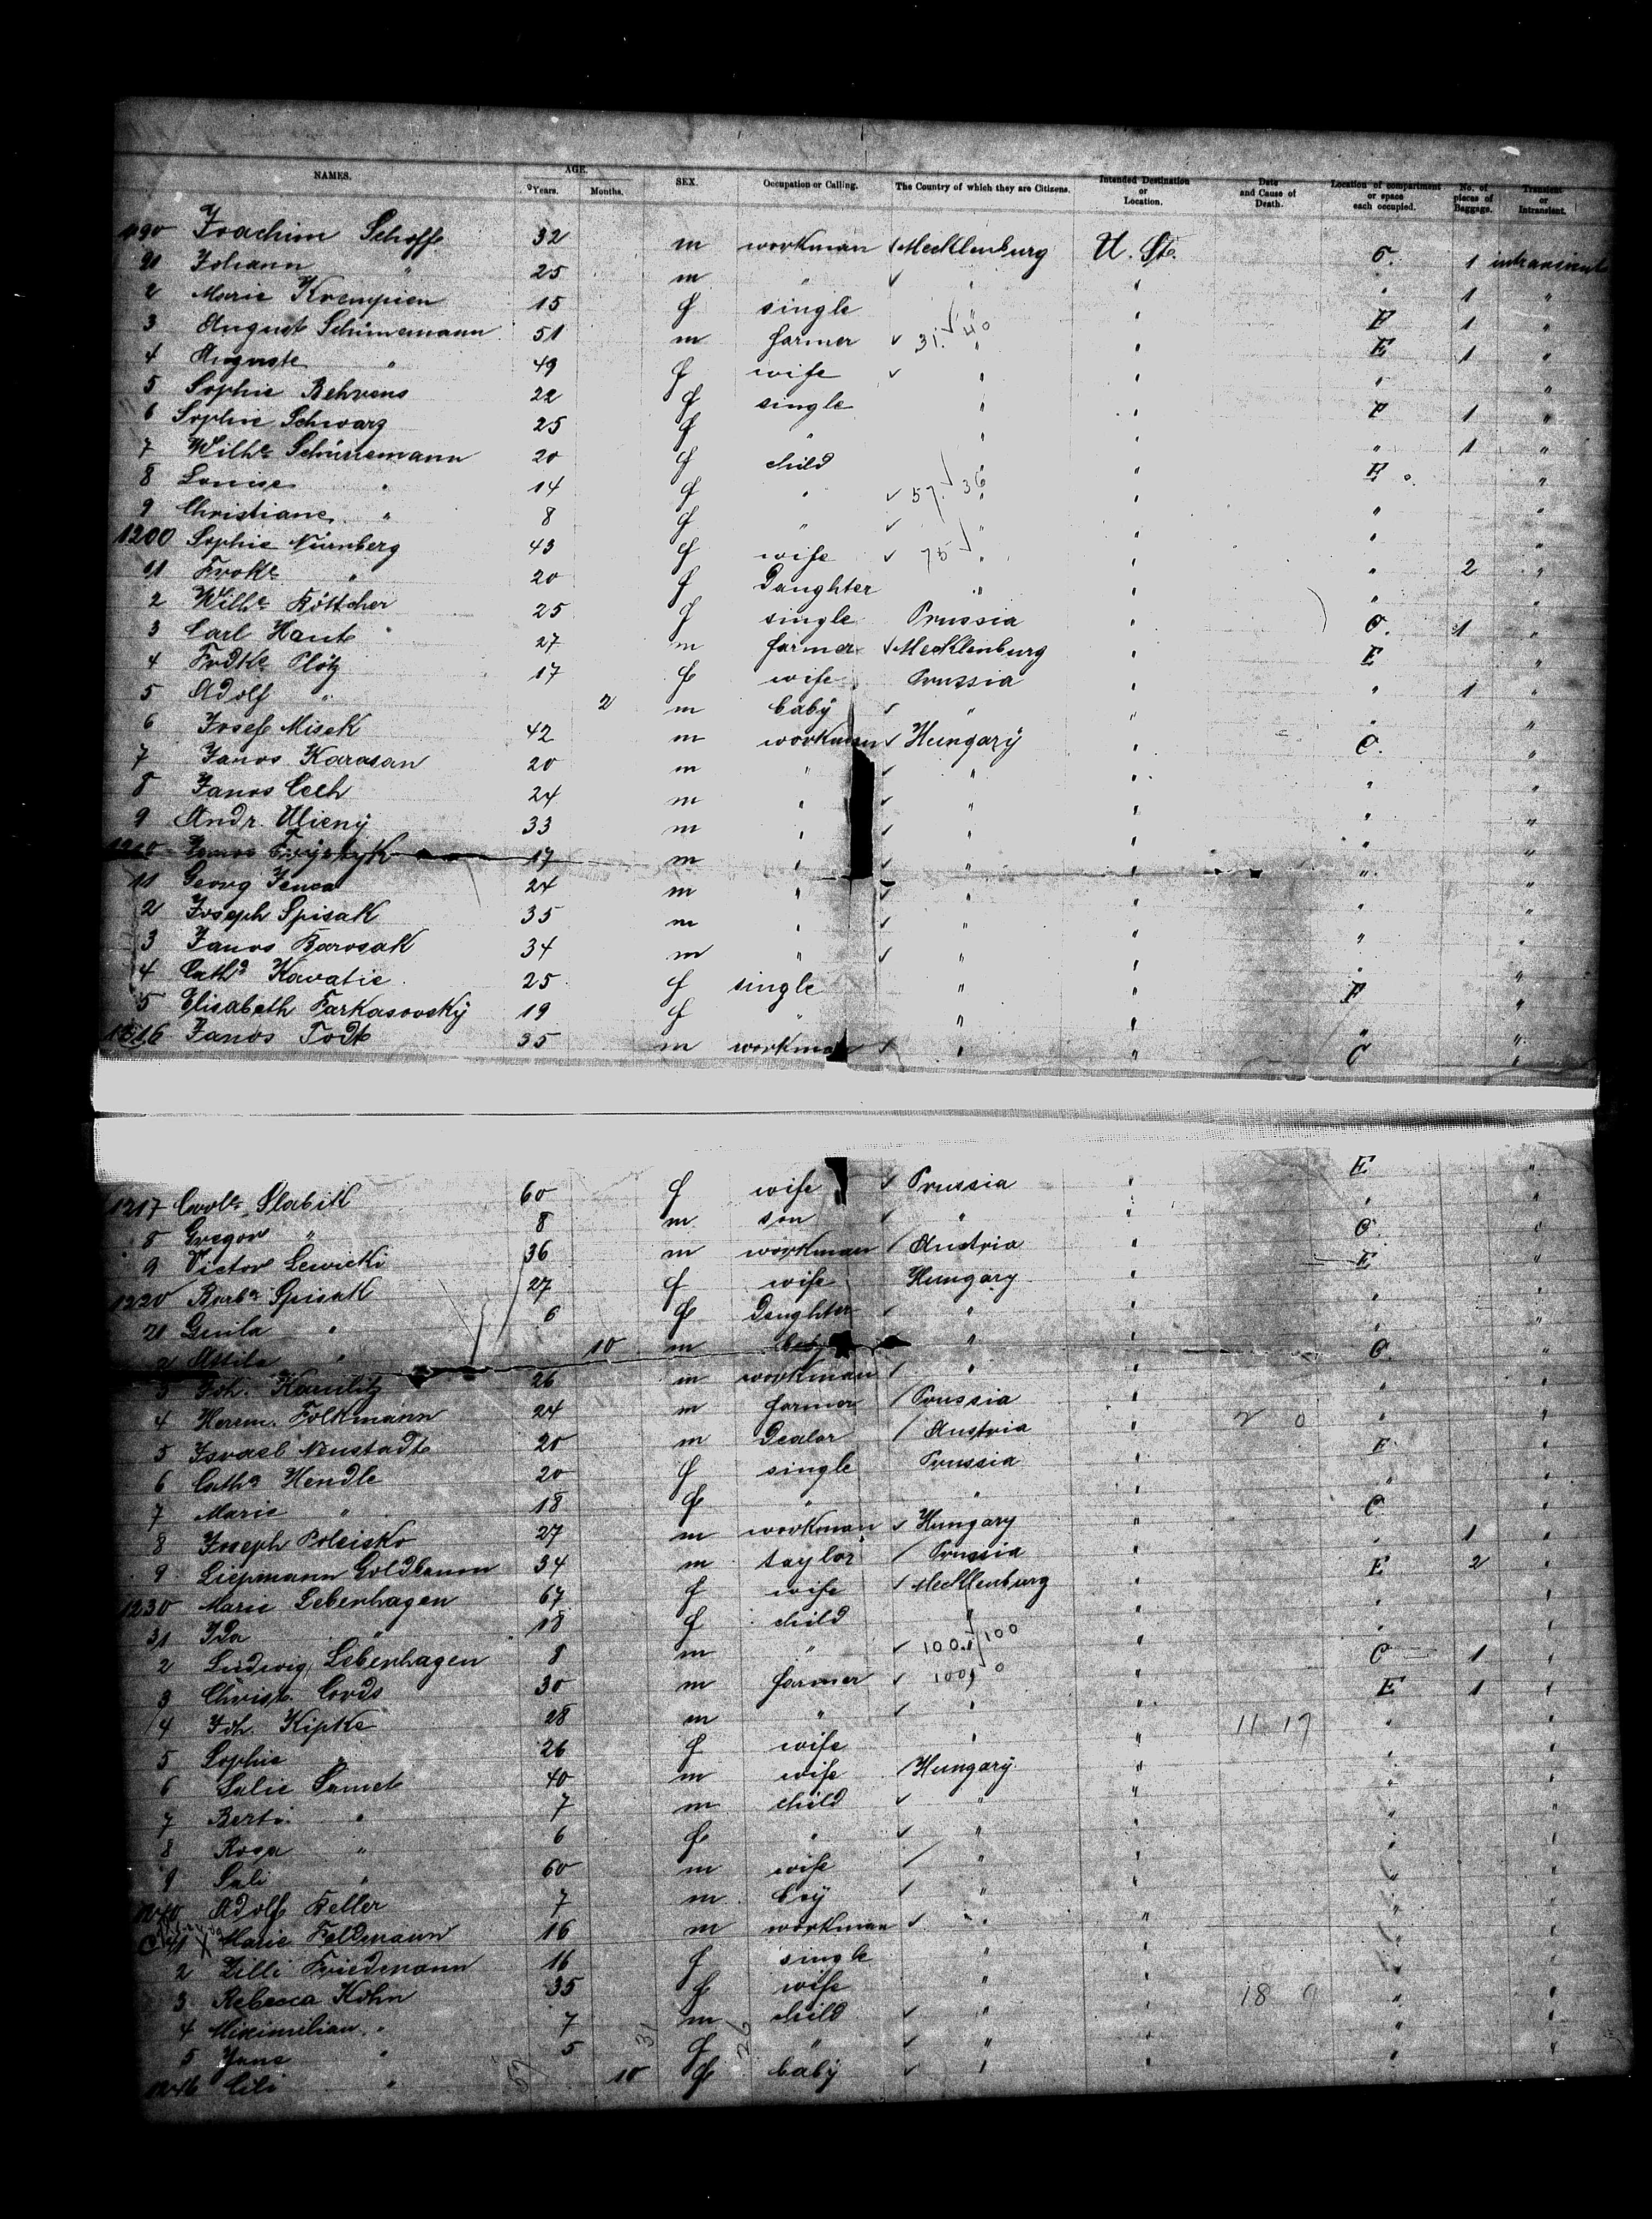 NAMES. AGE. Years. Months. SEX. Occupation or Calling. The Country of which they are Citizens. Intended Destination or Location. Date and Cause of Death. Location of compartment or space each occupied. No. of pieces of Baggage. Transient or Intransient.
1190 Joachim Schoff 32 m workman Mecklenburg U. St. C. 1 intransient
91 Johann " 25 m " " " " 1 "
2 Marie Krempien 15 f single " " F 1 "
3 August Schünemann 51 m farmer 31. 40 " " E 1 "
4 Auguste " 49 f wife " " " "
5 Sophie Behrens 22 f single " " F 1 "
6 Sophie Schwarz 25 f " " " " 1 "
7 Wilhe Schünemann 20 f child " " E "
8 Louise " 14 f " 57. 36 " " "
9 Christiane " 8 f " " " " "
1200 Sophie Nürnberg 43 f wife 75 " " " 2 "
01 Frdke " 20 f Daughter " " " "
2 Wilhe Böttcher 25 f single Prussia " C. 1 "
3 Carl Haut 27 m farmer Mecklenburg " E "
4 Frdke Plötz 17 f wife Prussia " " 1 "
5 Adolf " 2 m baby " " " "
6 Josef Misek 42 m workman Hungary " C. "
7 Janos Karasan 20 m " " " " "
8 Janos Cech 24 m " " " " "
9 Andr. Ulicny 33 m " " " " "
1210 Janos 17 m " " " " "
11 Georg Jenca 24 m " " " " "
2 Joseph Spisak 35 m " " " " "
3 Janos Barosak 34 m " " " " "
4 Catha Kavatic 25 f single " " F "
5 Elisabeth Farkasovsky 19 f " " " " "
1216 Janos Todt 35 m workman " " C "
1217 Carole Slabik 60 f wife Prussia " E "
8 Gregor " 8 m son " " " "
9 Victor Lewicki 36 m workman Austria " C. "
1220 Barba Spisak 27 f wife Hungary " E "
21 Guila " 6 f Daughter " " " "
2 Attila " 10 m baby " " " "
3 Joh. Kamlitz 26 m workman " " C. "
4 Herm. Folkmann 24 m farmer Prussia " " "
5 Israel Neustadt 20 m Dealer Austria " 2 0 " "
6 Catha Hendle 20 f single Prussia " F "
7 Marie " 18 f " " " " "
8 Joseph Poleisko 27 m workman Hungary " C "
9 Liepmann Goldbaum 34 m taylor Prussia " " 1 "
1230 Marie Lebenhagen 67 f wife Mecklenburg " E 2 "
31 Ida " 18 f child " " " "
2 Ludwig Lebenhagen 8 m " 100. 100 " " "
3 Christ. Cords 30 m farmer 100. 0 " C 1 "
4 Joh. Kipke 28 m " " " E 1 "
5 Sophie " 26 f wife " " 11 17 " "
6 Salie Samet 40 m wife Hungary " " "
7 Berti " 7 m child " " " "
8 Rosa " 6 f " " " " "
9 Sali " 60 m wife " " " "
1240 Adolf Keller 7 m boy " " " "
41 X Marie Feldmann 16 m workman " " " "
2 Lilli Friedmann 16 f single " " " "
3 Rebecca Kohn 35 f wife " " " "
4 Miximilian " 7 m child " " 18 " "
5 Jane " 5 f " " " " "
1246 Cili " 10 f baby " " " "
57 31 26